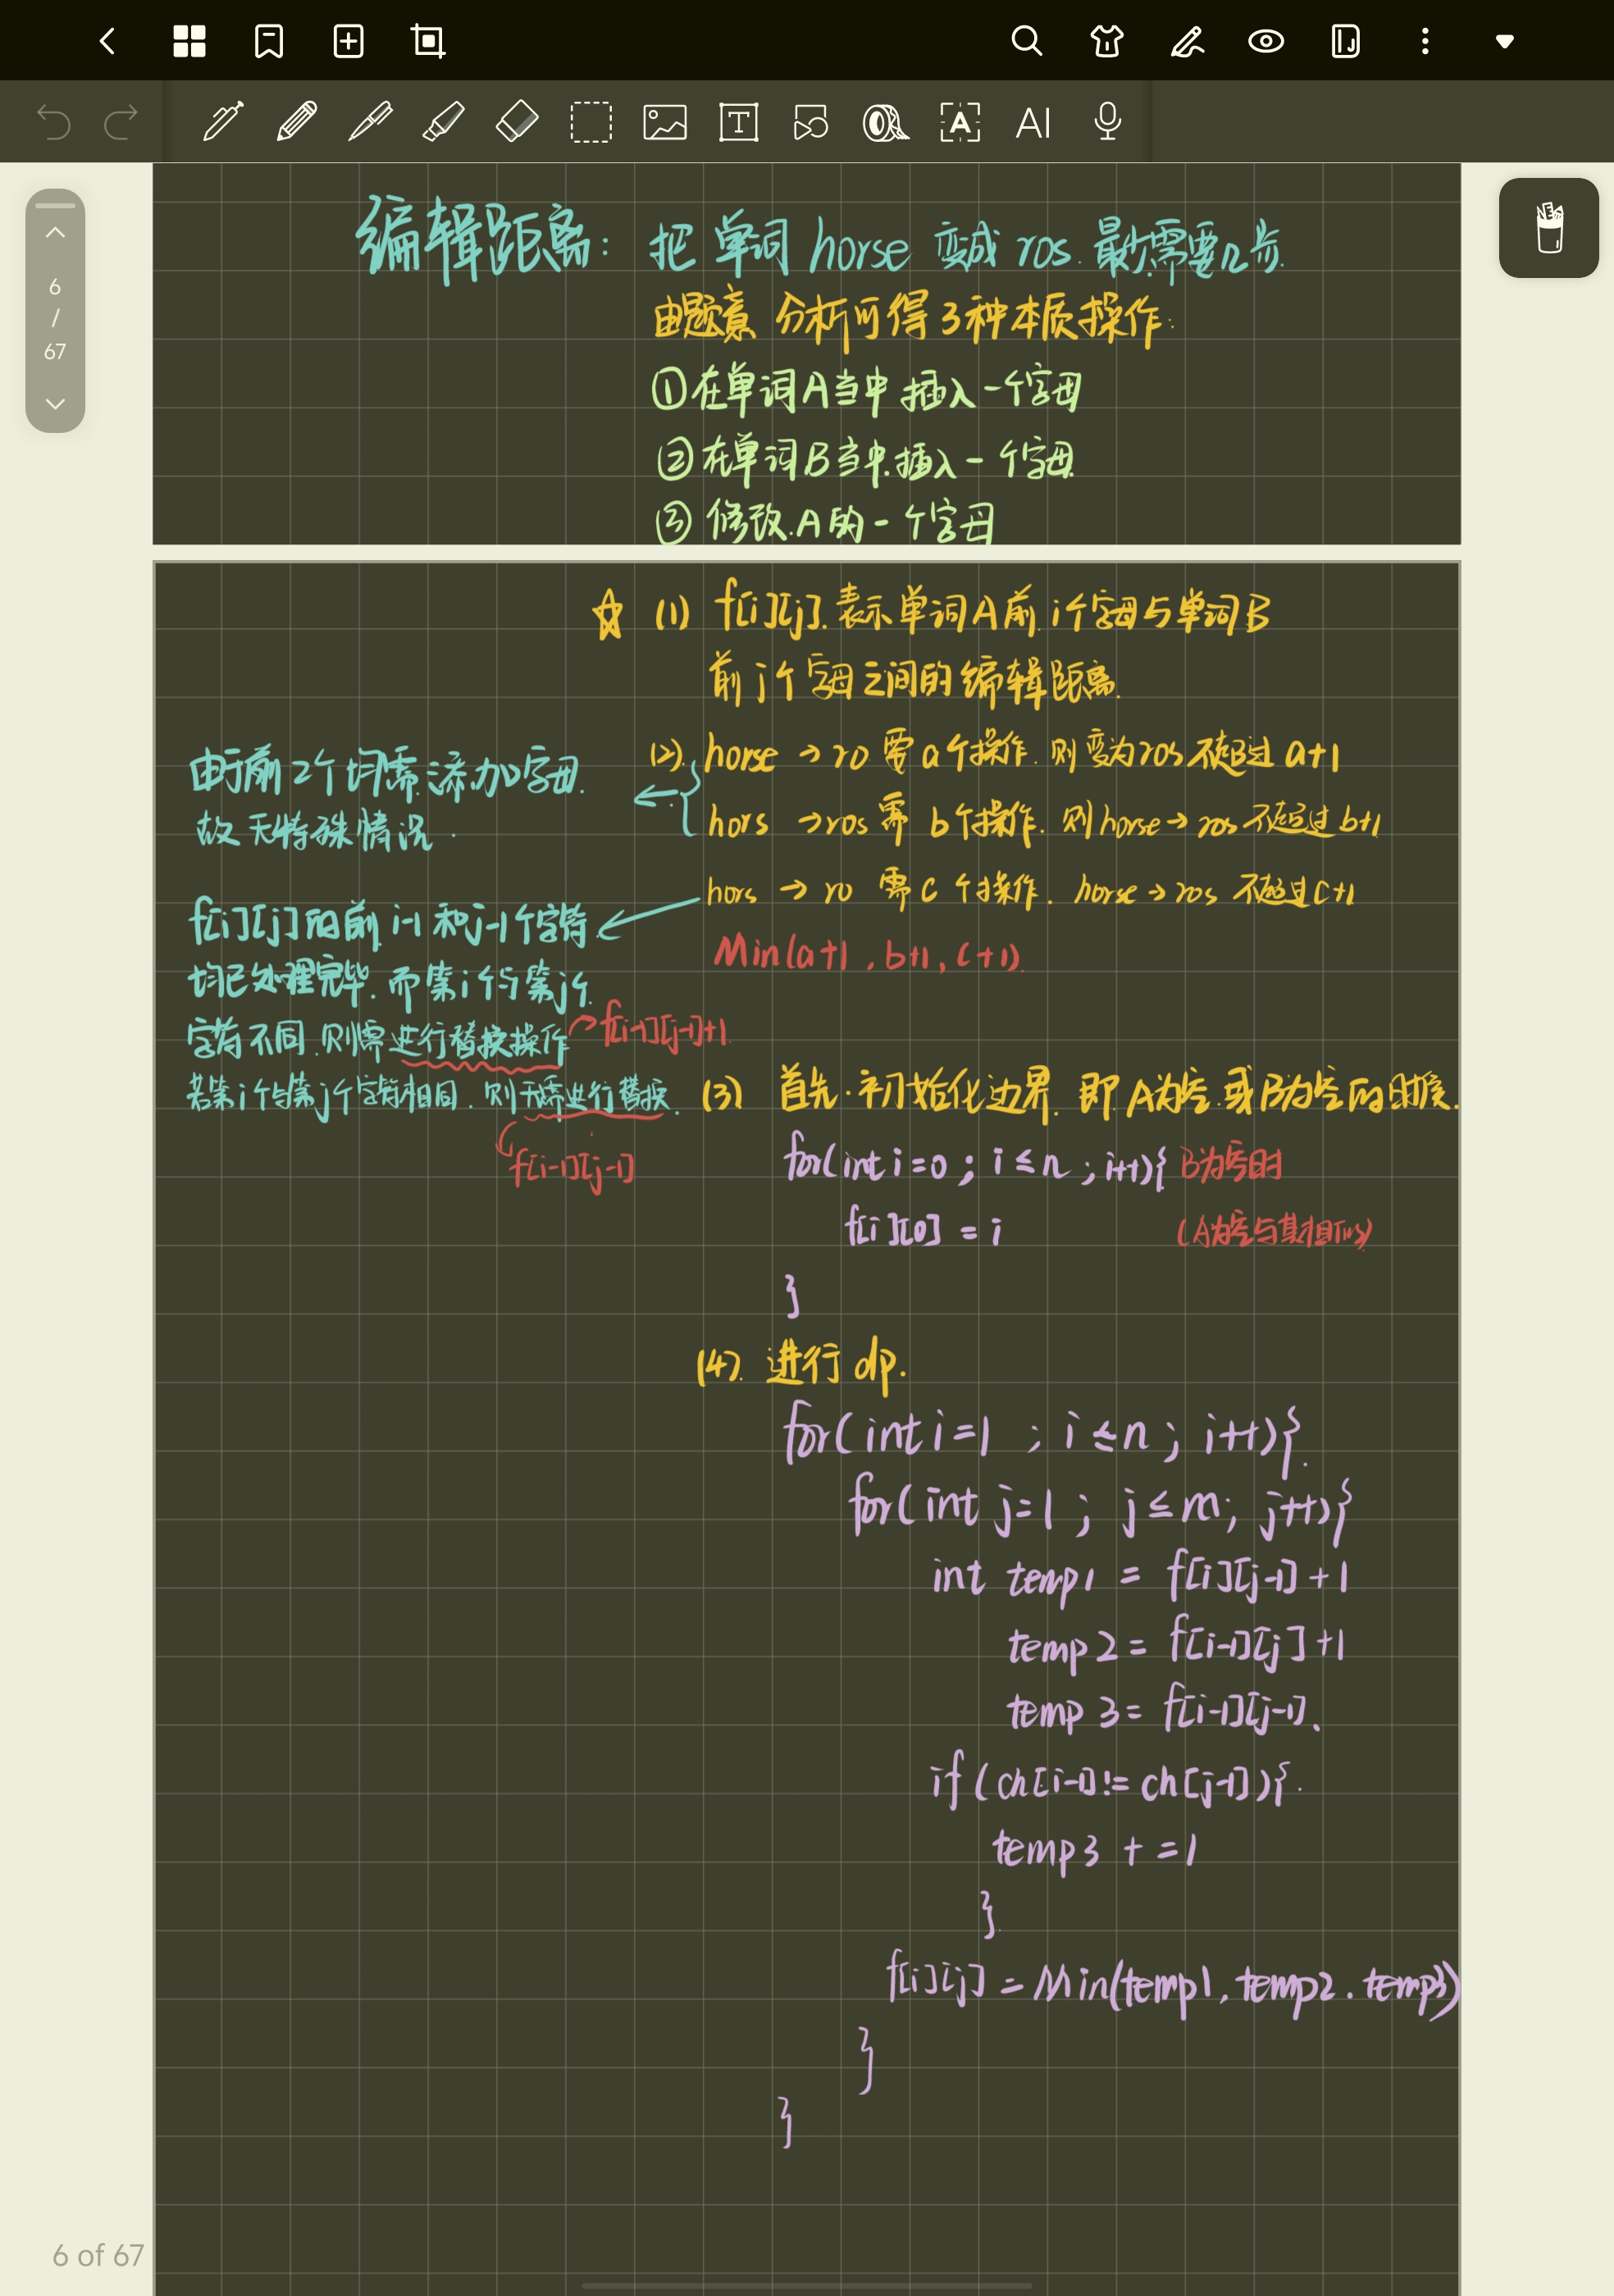 6
/
67
A
T
AI
编辑距离: 把单词 horse 变成 ros. 最少需要几步.
由题意 分析可得 3种本质操作:
①在单词A当中 插入一个字母
②在单词B当中.插入一个字母
③修改.A的一个字母
☆ (1) f[i][j].表示单词A前.i个字母与单词B
前j个字母之间的编辑距离.
(2). horse → ro 需 a个操作. 则变为ros 不超过 a+1
hors → ros 需 b个操作. 则horse → ros 不超过 b+1
hors → ro 需 c 个操作. horse → ros 不超过 c+1
Min(a+1, b+1, c+1).
由于前2个均需添加字母.
故无特殊情况.
f[i][j]的前i-1和j-1个字符.
均已处理完毕.而第i个与第j个.
字符不同.则需进行替换操作
f[i-1][j-1]+1.
若第i个与第j个字符相同.则无需进行替换.
f[i-1][j-1]
(3) 首先.初始化边界.即.A为空.或B为空的时候.
for(int i=0; i≤n; i++){ B为空时
f[i][0] = i (A为空与其相似)
}
(4). 进行dp.
for(int i=1 ; i≤n; i++){.
for(int j=1; j≤m; j++){
int temp1 = f[i][j-1]+1
temp2 = f[i-1][j]+1
temp3 = f[i-1][j-1].
if(ch[i-1]!= ch[j-1]){.
temp3 + =1
}.
f[i][j] = Min(temp1, temp2. temp3)
}
}
6 of 67